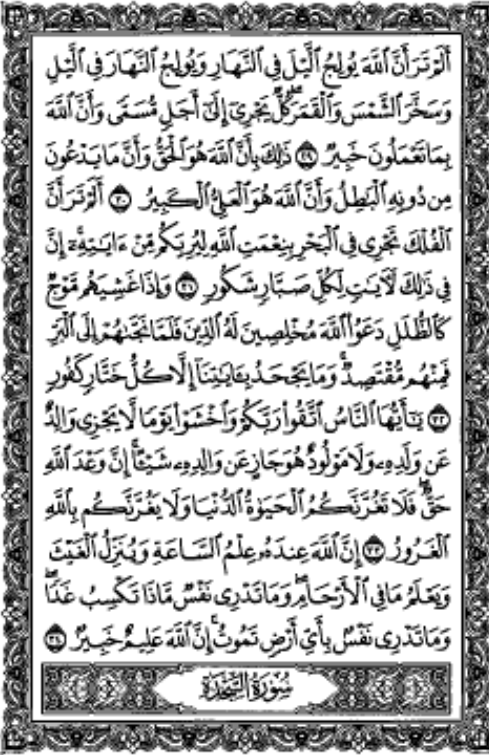 أَلَمْ تَرَ أَنَّ ٱللَّهَ يُولِجُ ٱلَّيْلَ فِي ٱلنَّهَارِ وَيُولِجُ ٱلنَّهَارَ فِي ٱلَّيْلِ
وَسَخَّرَ ٱلشَّمْسَ وَٱلْقَمَرَ كُلٌّ يَجْرِىٓ إِلَىٰٓ أَجَلٍ مُّسَمًّى وَأَنَّ ٱللَّهَ
بِمَا تَعْمَلُونَ خَبِيرٌ ٢٩ ذَٰلِكَ بِأَنَّ ٱللَّهَ هُوَ ٱلْحَقُّ وَأَنَّ مَا يَدْعُونَ
مِن دُونِهِ ٱلْبَٰطِلُ وَأَنَّ ٱللَّهَ هُوَ ٱلْعَلِىُّ ٱلْكَبِيرُ ٣٠ أَلَمْ تَرَ أَنَّ
ٱلْفُلْكَ تَجْرِى فِي ٱلْبَحْرِ بِنِعْمَتِ ٱللَّهِ لِيُرِيَكُم مِّنْ ءَايَٰتِهِۦٓ إِنَّ
فِي ذَٰلِكَ لَءَايَٰتٍ لِّكُلِّ صَبَّارٍ شَكُورٍ ٣١ وَإِذَا غَشِيَهُم مَّوْجٌ
كَٱلظُّلَلِ دَعَوُا۟ ٱللَّهَ مُخْلِصِينَ لَهُ ٱلدِّينَ فَلَمَّا نَجَّىٰهُمْ إِلَى ٱلْبَرِّ
فَمِنْهُم مُّقْتَصِدٌ ۚ وَمَا يَجْحَدُ بِـَٔايَٰتِنَآ إِلَّا كُلُّ خَتَّارٍ كَفُورٍ
٣٢ يَٰٓأَيُّهَا ٱلنَّاسُ ٱتَّقُوا۟ رَبَّكُمْ وَٱخْشَوْا۟ يَوْمًا لَّا يَجْزِى وَالِدٌ
عَن وَلَدِهِۦ وَلَا مَوْلُودٌ هُوَ جَازٍ عَن وَالِدِهِۦ شَيْـًٔا ۚ إِنَّ وَعْدَ ٱللَّهِ
حَقٌّ ۖ فَلَا تَغُرَّنَّكُمُ ٱلْحَيَوٰةُ ٱلدُّنْيَا وَلَا يَغُرَّنَّكُم بِٱللَّهِ
ٱلْغَرُورُ ٣٣ إِنَّ ٱللَّهَ عِندَهُۥ عِلْمُ ٱلسَّاعَةِ وَيُنَزِّلُ ٱلْغَيْثَ
وَيَعْلَمُ مَا فِي ٱلْأَرْحَامِ ۖ وَمَا تَدْرِى نَفْسٌ مَّاذَا تَكْسِبُ غَدًا ۖ
وَمَا تَدْرِى نَفْسٌۢ بِأَىِّ أَرْضٍ تَمُوتُ ۚ إِنَّ ٱللَّهَ عَلِيمٌ خَبِيرٌۢ ٣٤
سُورَةُ السَّجْدَةِ